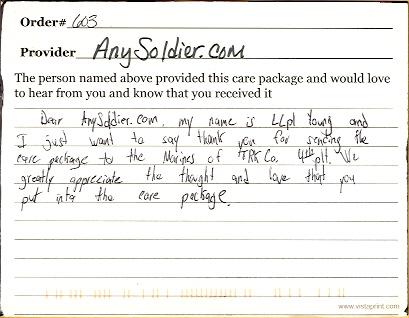 Order# 603
Provider AnySoldier.com
The person named above provided this care package and would love
to hear from you and know that you received it
Dear AnySoldier.com, my name is LCpl Young and
I just want to say thank you for sending the
care package to the Marines of TRK Co. 4th plt. We
greatly appreciate the thought and love that you
put into the care package.
www.vistaprint.com